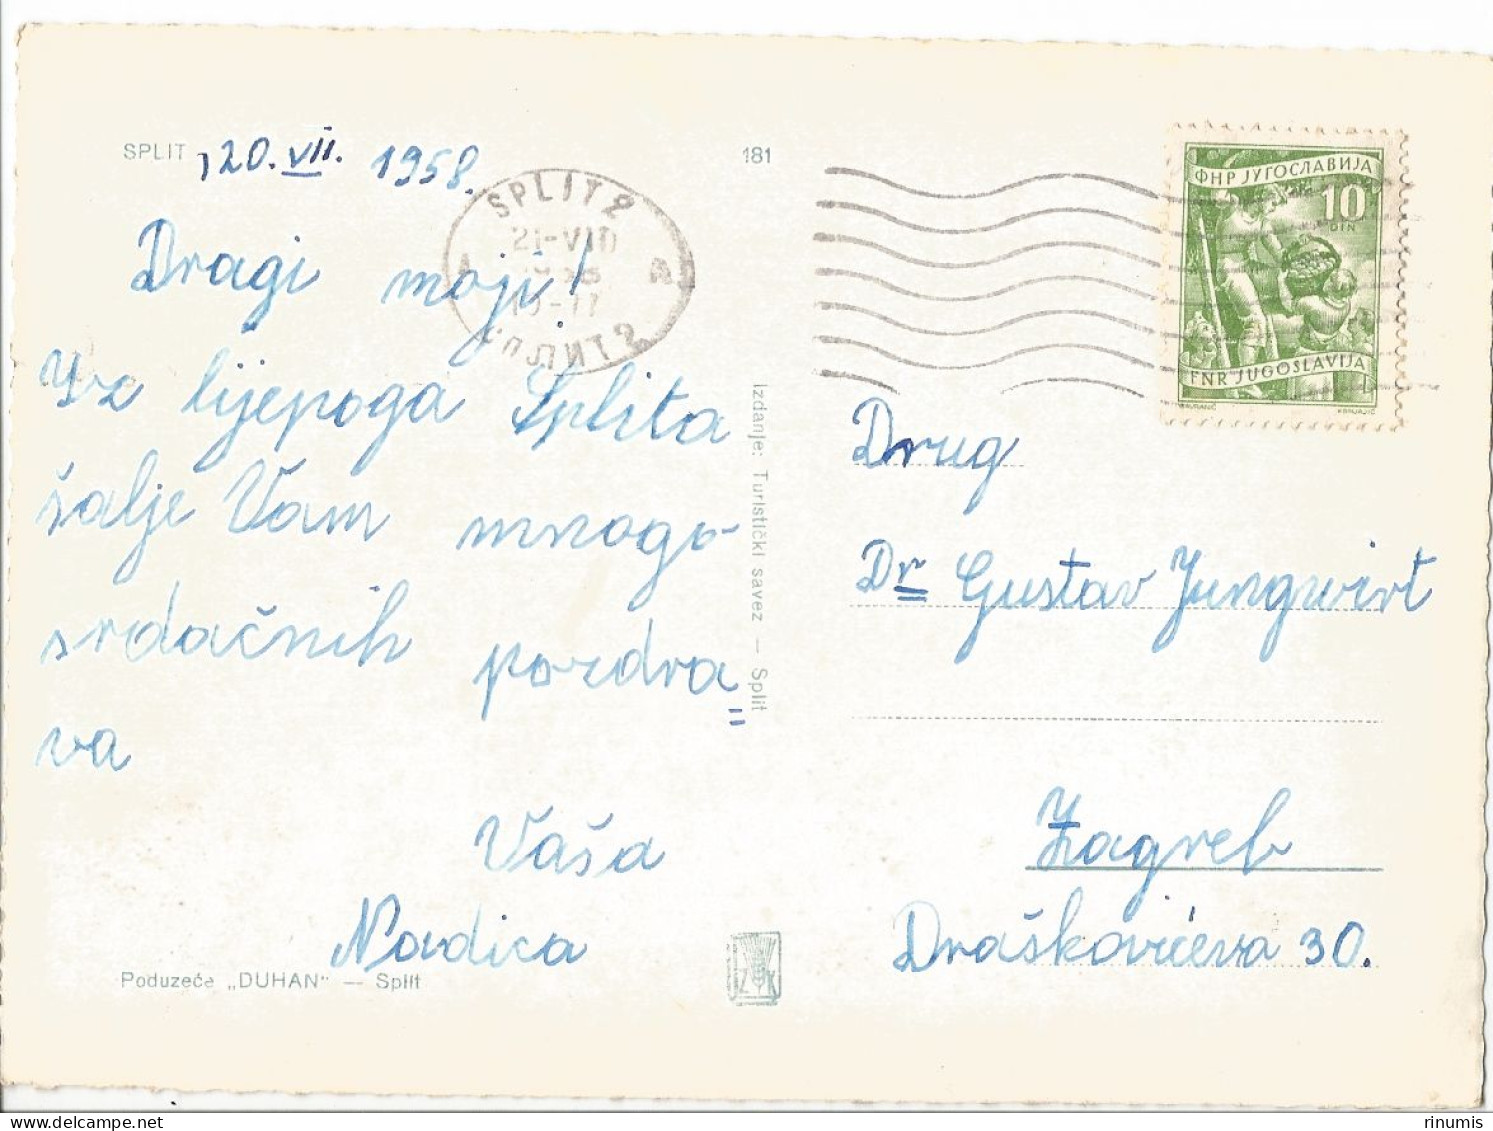 SPLIT, 20. VII. 1958.
181
SPLIT 2
21-VII
СПЛИТ 2
ФНР ЈУГОСЛАВИЈА
10
DIN
FNR JUGOSLAVIJA
Dragi moji!
Iz lijepoga Splita
šalje Vam mnogo
srdačnih pozdra=
va
Vaša
Nevdica
Izdanje: Turistički savez — Split
Drug
Dr Gustav Jungwirt
Zagreb
Draškovićeva 30.
Poduzeće „DUHAN" — Split
Z K
rinumis